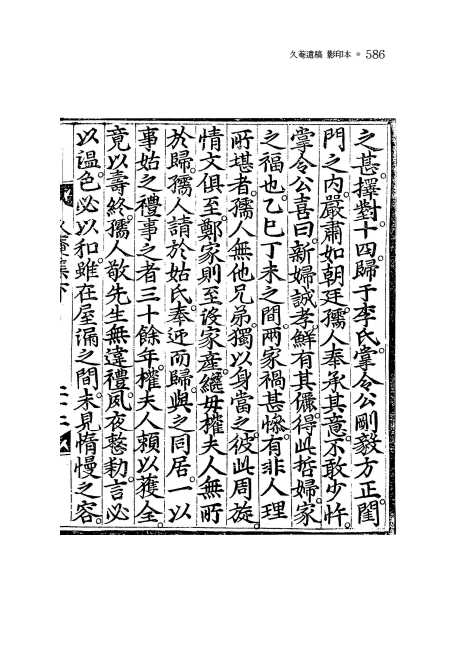 久菴遺稿 影印本 ● 586
之甚。擇對十四歸于李氏。掌令公剛毅方正。閨
門之內嚴肅如朝廷。孺人奉承其意。不敢少忤。
掌令公喜曰。新婦誠孝。鮮有其儷。得此哲婦。家
之福也。乙巳丁未之間。兩家禍甚慘。有非人理
所堪者。孺人無他兄弟。獨以身當之。彼此周旋。
情文俱至。鄭家則至沒家産。繼母權夫人無所
於歸。孺人請於姑氏。奉迎而歸。與之同居。一以
事姑之禮事之者三十餘年。權夫人賴以獲全。
竟以壽終。孺人敬先生無違禮。夙夜慗勅。言必
以溫色。必以和。雖在屋漏之間。未見惰慢之容。